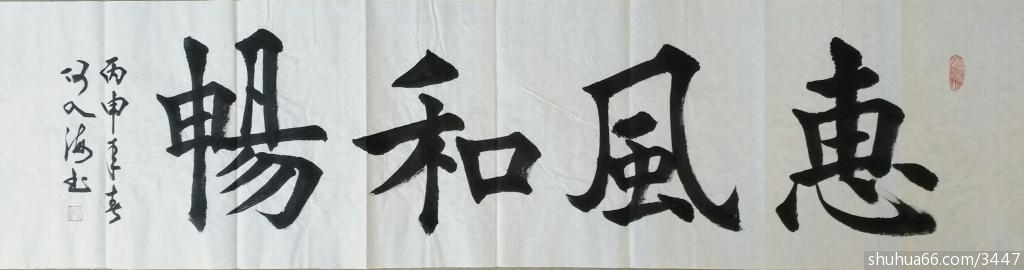 惠風和暢
丙申年春
何入海书
shuhua66.com/3447